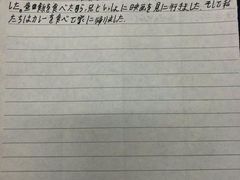 した。昼ご飯を食べた後、兄といっしょに映画を見に行きました。そして私
たちはカレーを食べて家に帰りました。